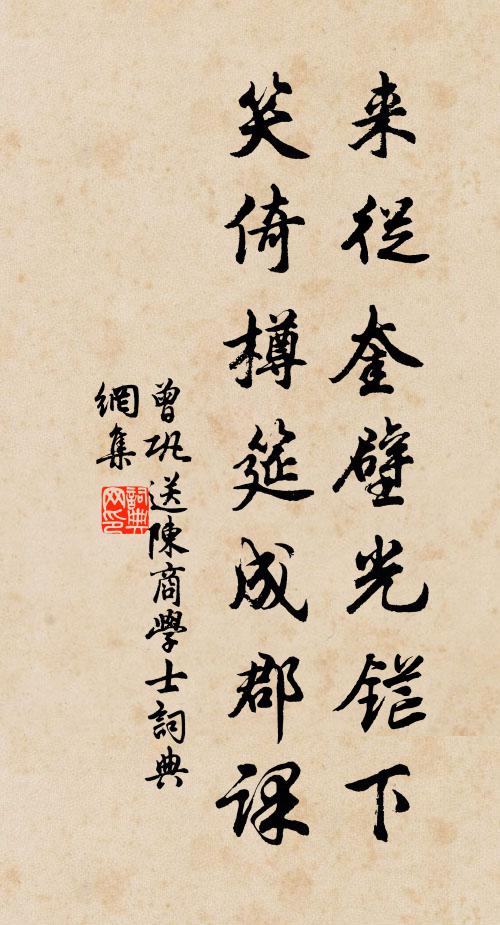 来從奎壁光鋩下
笑倚樽筵成郡課
曾巩送陳商學士詞典
網集
詞典網印